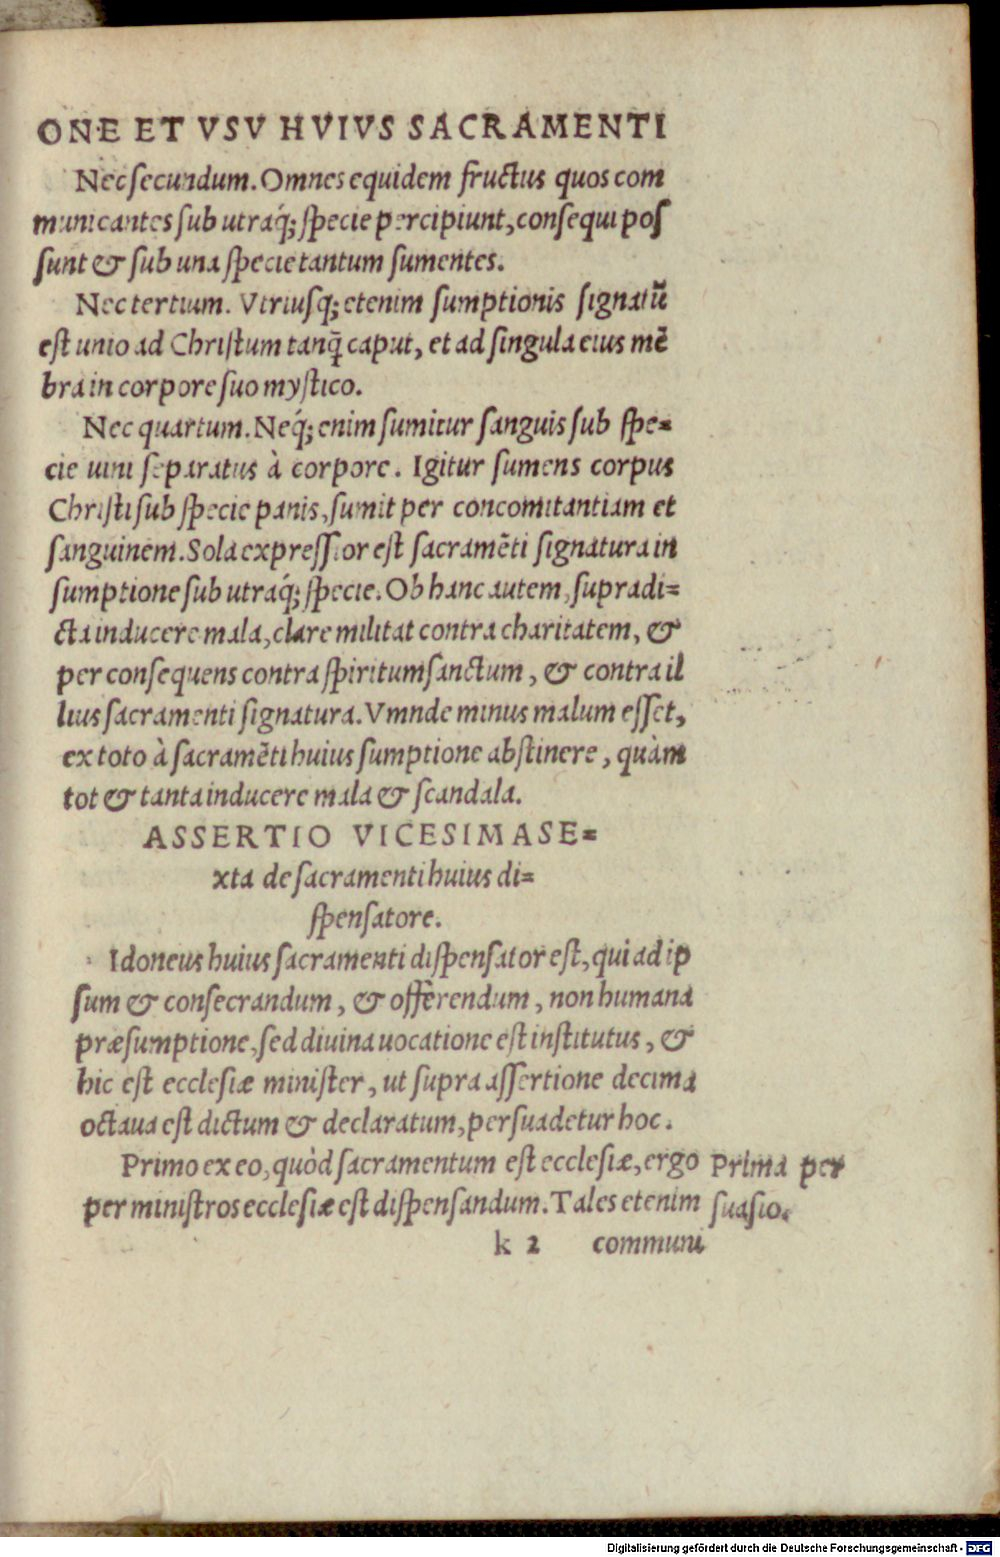 ONE ET VSV HVIVS SACRAMENTI
Nec secundum. Omnes equidem fructus quos com
municantes sub utraq́; specie percipiunt, consequi pos
sunt & sub una specie tantum sumentes.
Nec tertium. Vtriusq; etenim sumptionis signatū
est unio ad Christum tanq̃ caput, et ad singula eius mē
bra in corpore suo mystico.
Nec quartum. Neq́; enim sumitur sanguis sub spe=
cie uini separatus à corpore. Igitur sumens corpus
Christi sub specie panis, sumit per concomitantiam et
sanguinem. Sola expressior est sacramēti signatura in
sumptione sub utraq́; specie. Ob hanc autem, supradi=
cta inducere mala, clare militat contra charitatem, &
per consequens contra spiritumsanctum, & contra il
lius sacramenti signatura. Vmnde minus malum esset,
ex toto à sacramēti huius sumptione abstinere, quàm
tot & tanta inducere mala & scandala.
ASSERTIO VICESIMASE=
xta de sacramenti huius di=
spensatore.
Idoneus huius sacramenti dispensator est, qui ad ip
sum & consecrandum, & offerendum, non humana
præsumptione, sed diuina uocatione est institutus, &
hic est ecclesiæ minister, ut supra assertione decima
octaua est dictum & declaratum, persuadetur hoc.
Primo ex eo, quòd sacramentum est ecclesiæ, ergo
per ministros ecclesiæ est dispensandum. Tales etenim
Prima per
suasio.
k 2 communi
Digitalisierung gefördert durch die Deutsche Forschungsgemeinschaft - DFG